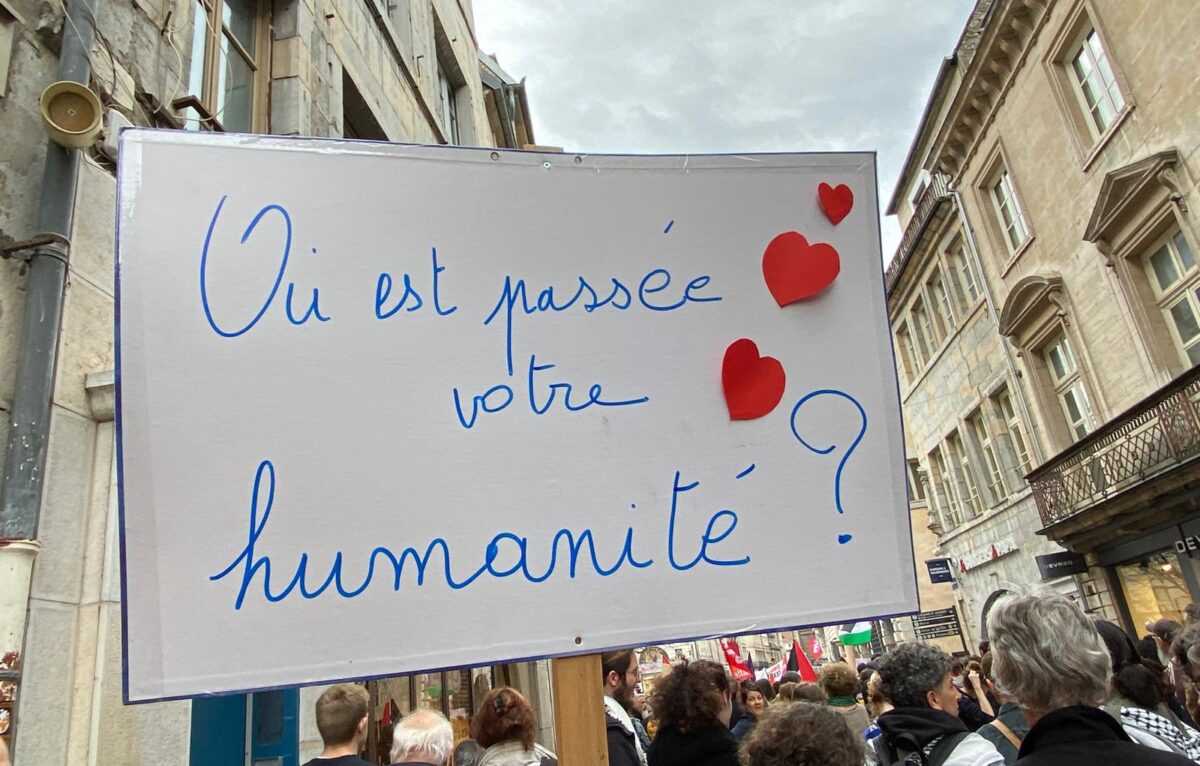 Où est passée
votre
humanité ?